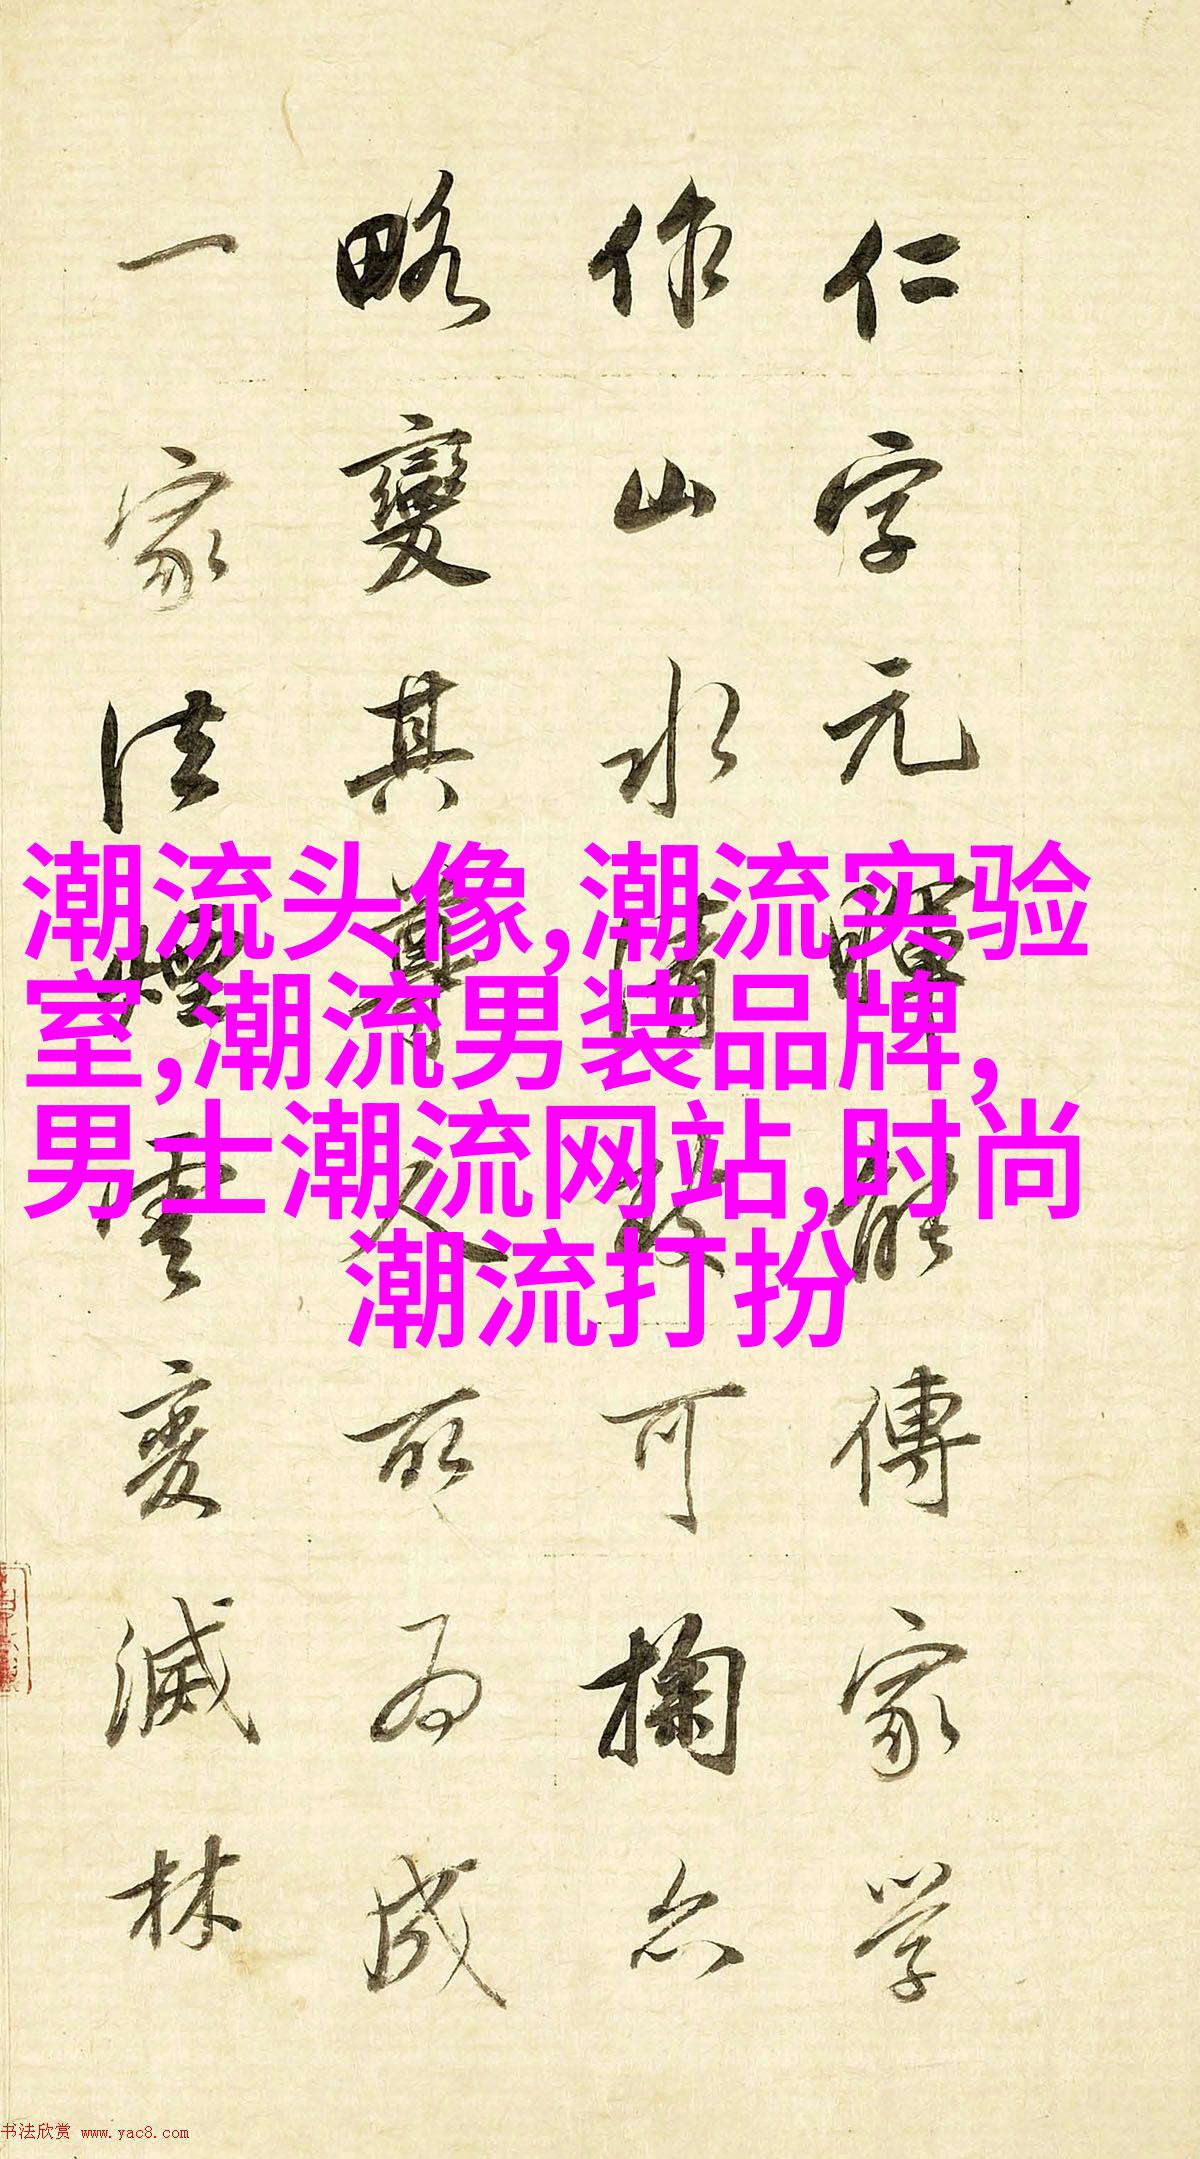 仁字元暉能傳家學
作山水清致可掬亦
略變其尊人所為成
一家法煙雲變滅林
潮流头像,潮流实验
室,潮流男装品牌,
男士潮流网站,时尚
潮流打扮
书法欣赏 www.yac8.com